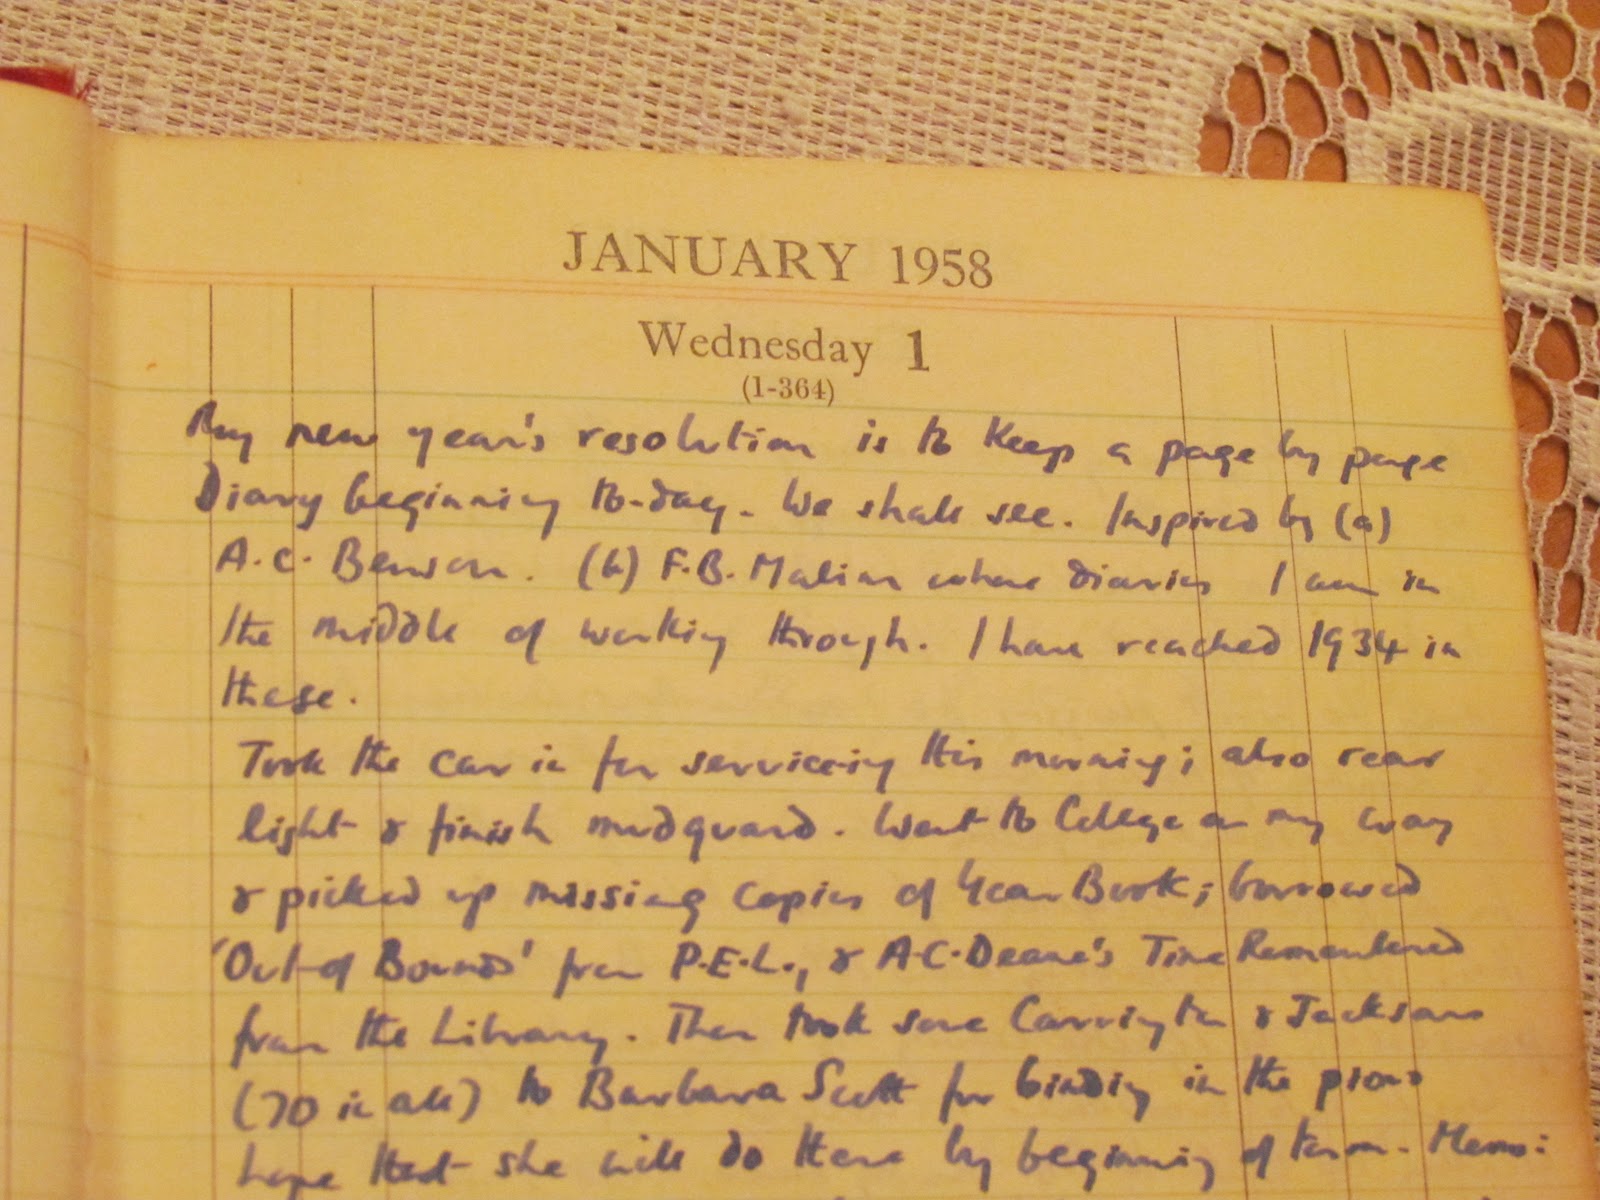 JANUARY 1958
Wednesday 1
(1-364)
My new year's resolution is to keep a page by page
Diary beginning to-day. We shall see. Inspired by (a)
A.C. Benson. (b) F.B. Malim whose diaries I am in
the middle of working through. I have reached 1934 in
these.
Took the car in for servicing this morning; also rear
light & finish mudguard. Went to College on my way
& picked up missing copies of Year Book; borrowed
'Out of Bounds' from P.E.L., & A.C. Deane's Time Remembered
from the Library. Then took some Carrington & Jacksons
(70 in all) to Barbara Scott for binding in the pious
hope that she will do them by beginning of term. Memo: